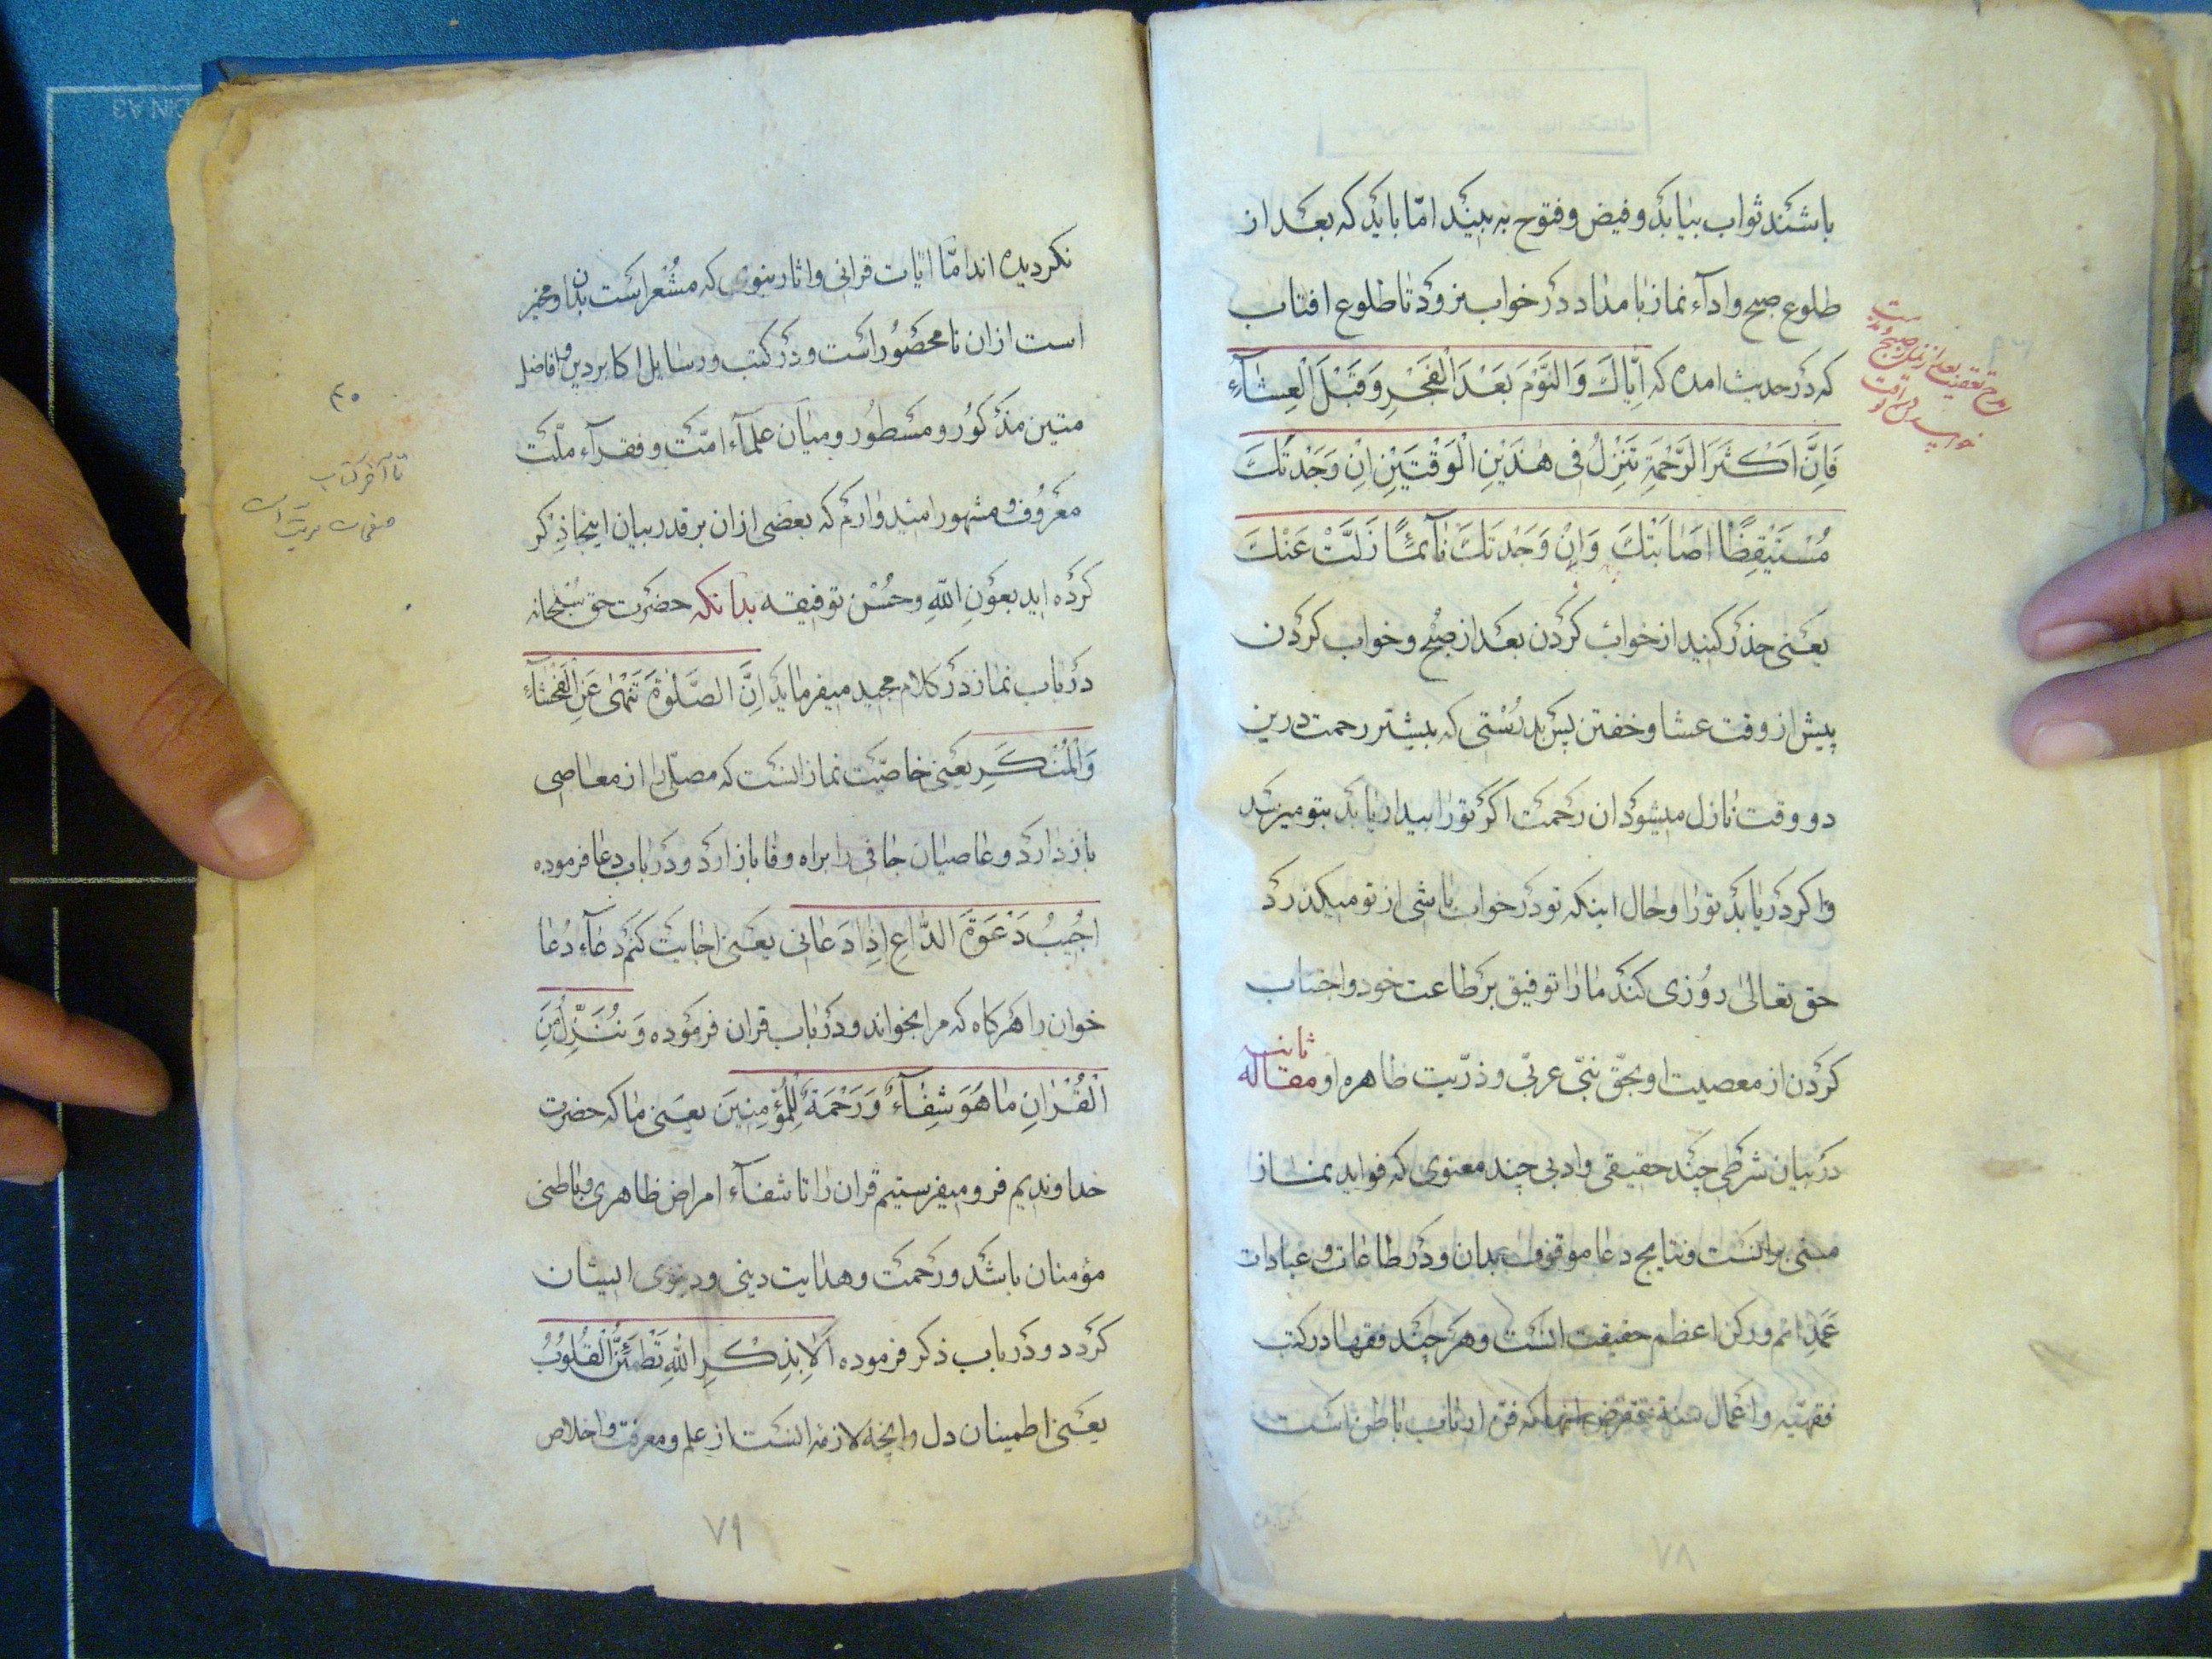 باشند ثواب بیابد و فیض و فتوح به بیند امّا باید که بعد از
طلوع صبح و ادآء نماز بامداد در خواب نرود تا طلوع افتاب
که در حدیث امده که اِیّاكَ وَالنَّوْمَ بَعْدَ الْفَجْرِ وَقَبْلَ الْعِشآءِ
فَاِنَّ اَكْثَرَ الرَّحْمَةِ تَنْزِلُ فى هٰذَيْنِ الْوَقْتَيْنِ اِنْ وَجَدْتَكَ
مُسْتَيْقِظًا اَصٰابَتْكَ وَاِنْ وَجَدْتَكَ نٰآئمًا زَلَّتْ عَنْكَ
یعنی حذر کنید از خواب کردن بعد از صبح و خواب کردن
پیش از وقت عشا و خفتن پس بدرستی که بیشتر رحمت درین
دو وقت نازل میشود ان رحمت اگر تورا بیدار یابد بتو میرسد
و اکر دریابد تورا و حال اینکه تو در خواب باشی از تو میکذرد
حق تعالی روزی کند مارا توفیق بر طاعت خود و اجتناب
کردن از معصیت او بحقّ نبیّ عربی و ذرّیت طاهره او مقاله
ثانیه
در بیان شرطی چند حقیقی و ادبی چند معنوی که فواید نماز
مبنی برانست و نتایج دعا موقوف بدان و در طاعات و عبادات
عمد اتم و رکن اعظم حقیقت انست و هر چند فقها در کتب
فقهیّه و اعمال متعرض انها که فنّ ارباب باطن است
۷۸
نکردیده اند امّا ایات قرانی و اثار نبوی که مشعر است بدان و مخبر
است از ان نامحصور است و در کتب و رسایل اکابر دین و افاضل
متین مذکور و مسطور و میان علمآء امّت و فقرآء ملّت
معروف و مشهور امیدوارم که بعضی از ان بر قدر بیان اینجا ذکر
کرده اید بعون اللهِ وحُسْنِ توفیقه بدانکه حضرت حق سبحانه
در باب نماز در کلام مجید میفرماید اِنَّ الصَّلوٰةَ تَنْهىٰ عَنِ الْفَحْشآءِ
وَالْمُنْكَرِ یعنی خاصیّت نماز انست که مصلّی را از معاصی
باز دارد و عاصیان جافی را براه وفا باز ارد و در باب دعا فرموده
اُجيبُ دَعْوَةَ الدّٰاعِ اِذٰا دَعٰانى یعنی اجابت کنم دعآء دعا
خوان را هرکاه که مرا بخواند و در باب قران فرموده وَنُنَزِّلُ مِنَ
الْقُرْانِ مٰا هُوَ شِفٰآءٌ وَرَحْمَةٌ لِلْمُؤْمِنينَ یعنی ما که حضرت
خداوندیم فرو میفرستیم قران را تا شفآء امراض ظاهری و باطنی
مؤمنان باشد و رحمت و هدایت دینی و دنیوی ایشان
کردد و در باب ذکر فرموده اَلٰا بِذِكْرِ اللهِ تَطْمَئِنُّ الْقُلُوبُ
یعنی اطمینان دل و انچه لازمه انست از علم و معرفت و اخلاص
تا آخر کتاب
۷۹